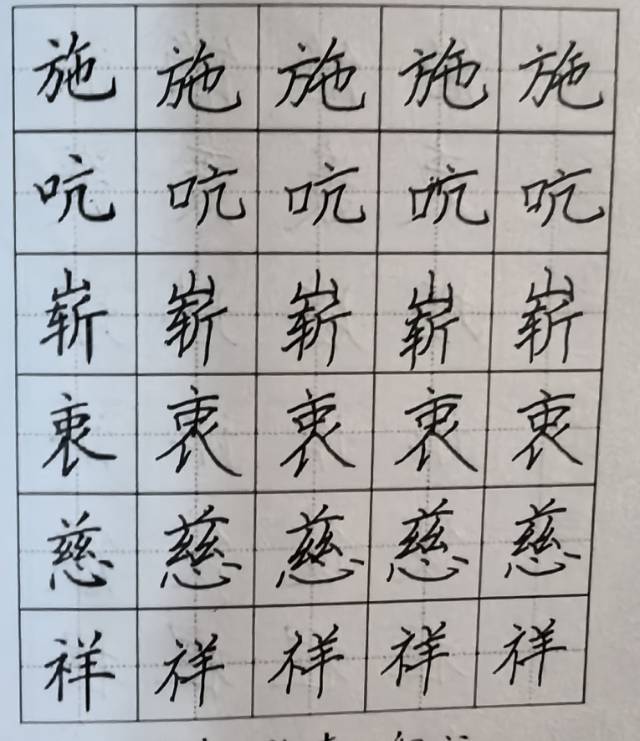 施施施施施
吭吭吭吭吭
崭崭崭崭崭
衷衷衷衷衷
慈慈慈慈慈
祥祥祥祥祥